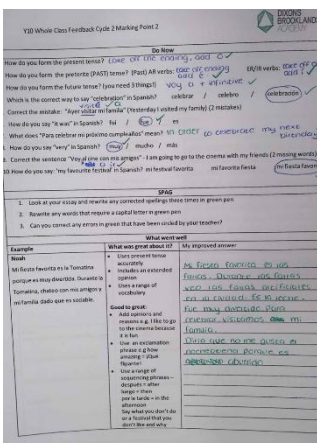 DIXONS
BROOKLANDS
ACADEMY
Y10 Whole Class Feedback Cycle 2 Marking Point 2
Do Now
How do you form the present tense? take off the ending, add o
How do you form the preterite (PAST) tense? (Past) AR verbs: take off ending add é ER/IR verbs: take off add í
How do you form the future tense? (you need 3 things!) voy a + infinitive
Which is the correct way to say "celebration" in Spanish? celebrar / celebro / celebración
Correct the mistake: "Ayer visitar mi familia" (Yesterday I visited my family) (2 mistakes) visité a
How do you say "it was" in Spanish? fui / fue / es
What does "Para celebrar mi próximo cumpleaños" mean? in order to celebrate my next birthday
How do you say "very" in Spanish? muy / mucho / más
Correct the sentence "Voy al cine con mis amigos" - I am going to go to the cinema with my friends (2 missing words) a ir
10 How do you say: 'my favourite festival' in Spanish? mi festival favorita mi favorita fiesta mi fiesta favori
SPAG
1. Look at your essay and rewrite any corrected spellings three times in green pen
2. Rewrite any words that require a capital letter in green pen
3. Can you correct any errors in green that have been circled by your teacher?
What went well
Example
What was great about it?
My improved answer
Noah
Mi fiesta favorita es la Tomatina
porque es muy divertida. Durante la
Tomatina, chateo con mis amigos y
mi familia dado que es sociable.
• Uses present tense
accurately
• Includes an extended
opinion
• Uses a range of
vocabulary
Good to great:
• Add opinions and
reasons e.g. I like to go
to the cinema because
it is fun
• Use an exclamation
phrase e.g how
amazing = ¡Qué
flipante!
• Use a range of
sequencing phrases –
después = after
luego = then
por la tarde = in the
afternoon
Say what you don't do
or a festival that you
don't like and why
Mi fiesta favorita es las
Fallas. Durante las Fallas
veo los fuegos artificiales
en la ciudad. Es la leche.
Fue muy divertido. Para
celebrar visitamos mi
familia.
Diría que no me gusta el
nochebuena porque es
aburrido